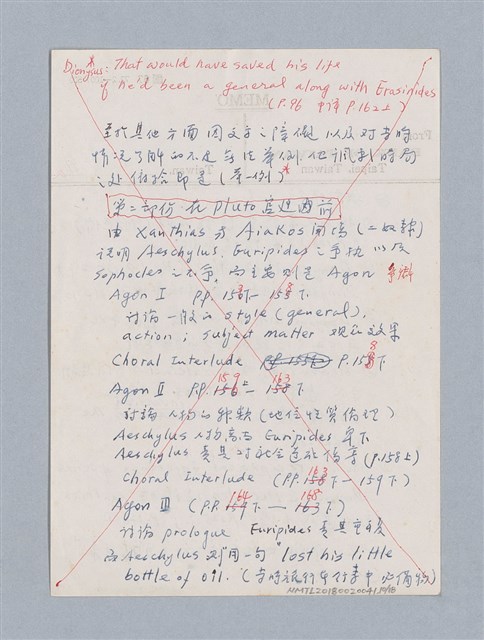 Dionysus: That would have saved his life
if he'd been a general along with Erasinides
(P.96 中譯 P.162上)
至於其他方面因文字之障礙以及對當時
情況了解的不足無法舉例。但諷刺時局
之處俯拾即是(舉一例)*
第二部份 在Pluto宮廷門前
由 Xanthias 與 Aiakos 閒談(二奴隸)
說明 Aeschylus. Euripides 之爭執以及
Sophocles 之不爭。而主要則是 Agon 爭辯
Agon I PP. 下
討論一般的 style (general),
action; subject matter 觀眾效果
Choral Interlude P.158下
Agon II P.P. 159上— 163下
討論人物的種類(地位性質倫理)
Aeschylus 人物高尚 Euripides 卑下
Aeschylus 責其對社會道德傷害 (p.158上)
Choral Interlude (P.P. 163下 — 159下)
Agon III (P.P. 164下 — 168下)
討論 prologue Euripides 責其重複
而 Aeschylus 對用一句 "lost his little
bottle of oil. (當時旅行中行李中必備物)
NMTL20180020041
MEMO
Taipei, Taiwan